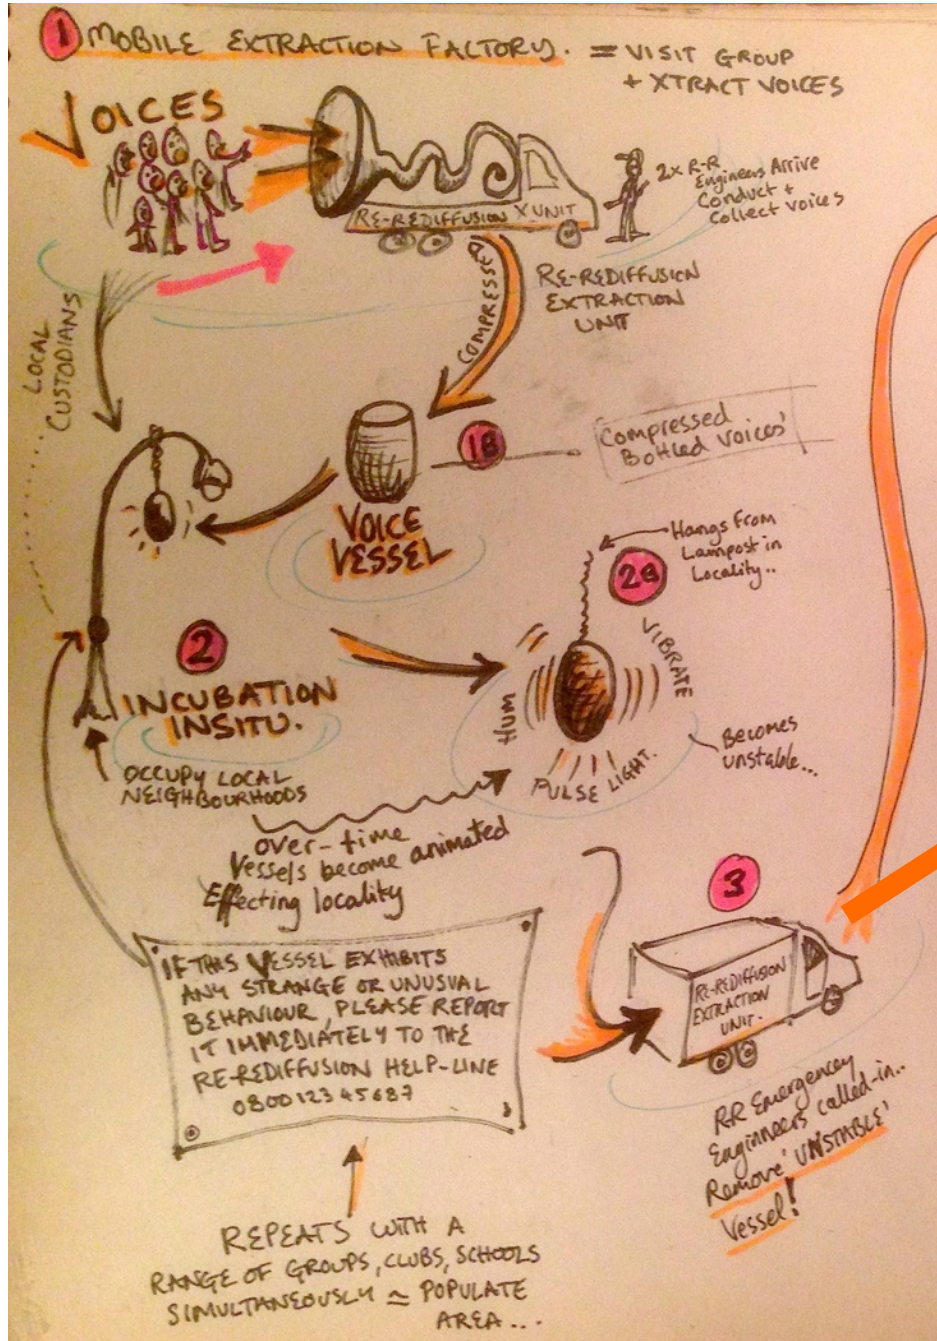 1 MOBILE EXTRACTION FACTORY. = VISIT GROUP
+ XTRACT VOICES
VOICES
RE-REDIFFUSION X UNIT
2x R-R
Engineers Arrive
Conduct +
Collect Voices
COMPRESSED
RE-REDIFFUSION
EXTRACTION
UNIT
LOCAL
CUSTODIANS
1B
Compressed
Bottled Voices'
VOICE
VESSEL
Hangs From
Lampost in
Locality..
2B
VIBRATE
HUM
PULSE LIGHT.
Becomes
unstable...
2
INCUBATION
INSITU.
OCCUPY LOCAL
NEIGHBOURHOODS
over-time
Vessels become animated
Effecting locality
3
IF THIS VESSEL EXHIBITS
ANY STRANGE OR UNUSUAL
BEHAVIOUR, PLEASE REPORT
IT IMMEDIATELY TO THE
RE-REDIFFUSION HELP-LINE
0800 123 45687
RE-REDIFFUSION
EXTRACTION
UNIT.
RR Emergency
Engineers called-in..
Remove 'UNSTABLE'
Vessel!
REPEATS WITH A
RANGE OF GROUPS, CLUBS, SCHOOLS
SIMULTANEOUSLY ≃ POPULATE
AREA...